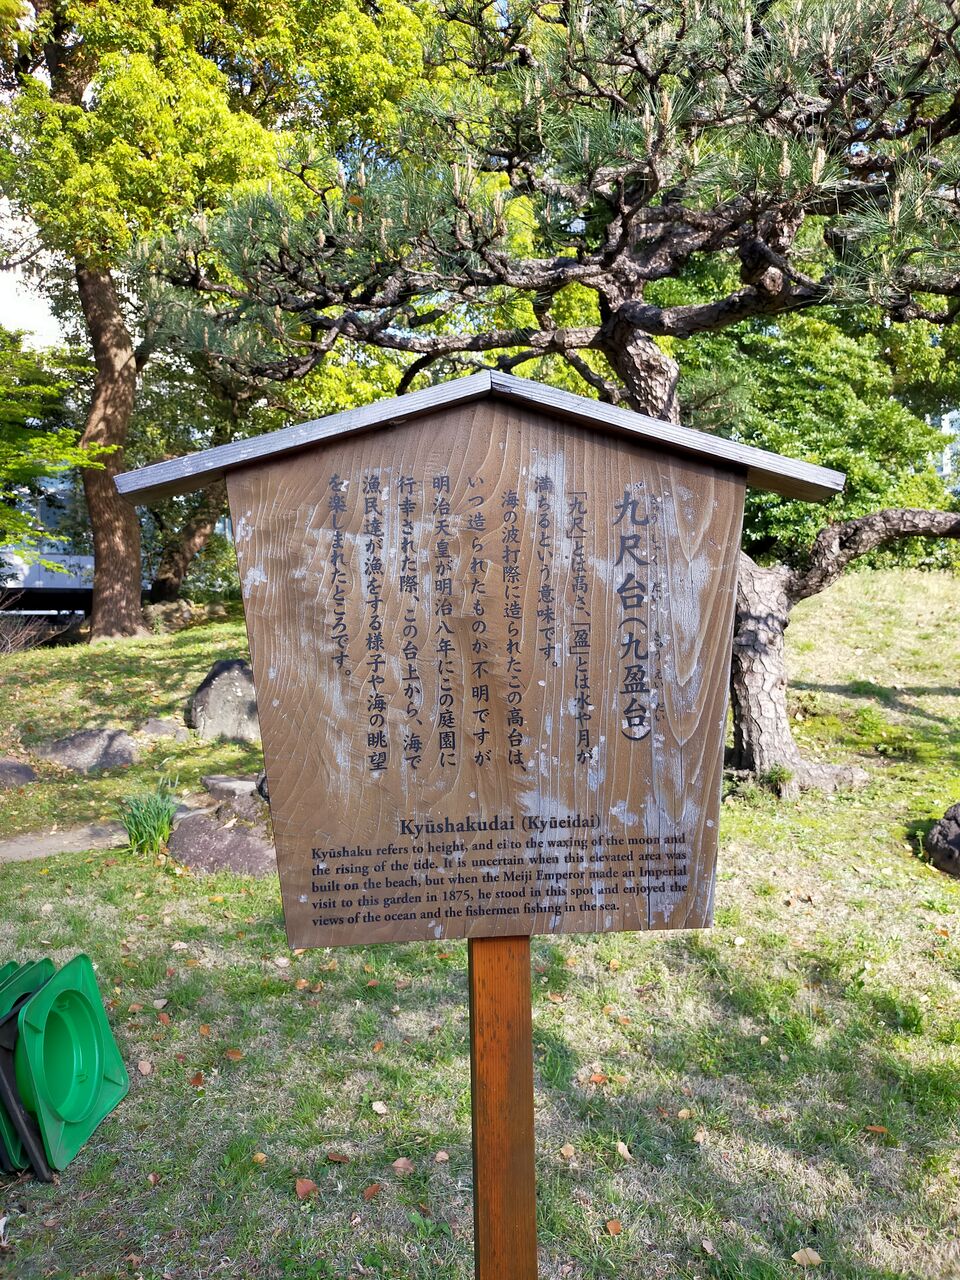 九尺台(九盈台)
きゅうしゃくだい きゅうえいだい
「九尺」とは高さ、「盈」とは水や月が
満ちるという意味です。
海の波打際に造られたこの高台は、
いつ造られたものか不明ですが
明治天皇が明治八年にこの庭園に
行幸された際、この台上から、海で
漁民達が漁をする様子や海の眺望
を楽しまれたところです。
Kyūshakudai (Kyūeidai)
Kyūshaku refers to height, and ei to the waxing of the moon and
the rising of the tide. It is uncertain when this elevated area was
built on the beach, but when the Meiji Emperor made an Imperial
visit to this garden in 1875, he stood in this spot and enjoyed the
views of the ocean and the fishermen fishing in the sea.